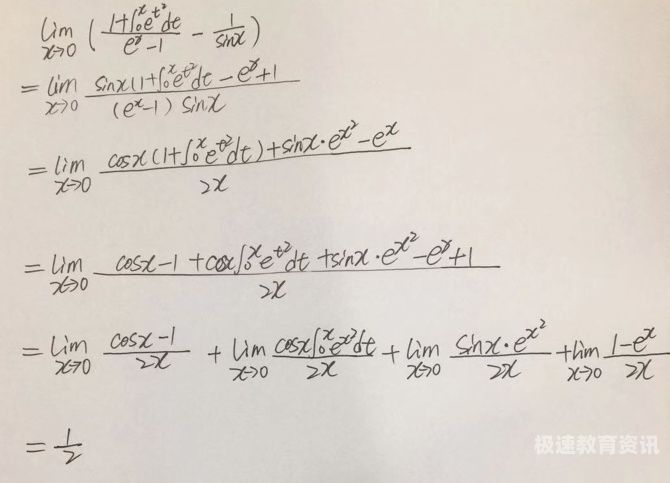 lim x→0 ( (1+∫₀ˣ e^{t²}dt)/(eˣ-1) - 1/sinx )
= lim x→0 (sinx(1+∫₀ˣ e^{t²}dt - eˣ+1)/((eˣ-1) sinx)
= lim x→0 (cosx(1+∫₀ˣ e^{t²}dt)+sinx·e^{x²}-eˣ)/(2x)
= lim x→0 (cosx-1+cosx∫₀ˣ e^{t²}dt+sinx·e^{x²}-eˣ+1)/(2x)
= lim x→0 (cosx-1)/(2x) + lim x→0 (cosx∫₀ˣ e^{t²}dt)/(2x) + lim x→0 (sinx·e^{x²})/(2x) + lim x→0 (1-eˣ)/(2x)
= 1/2
极速教育资讯